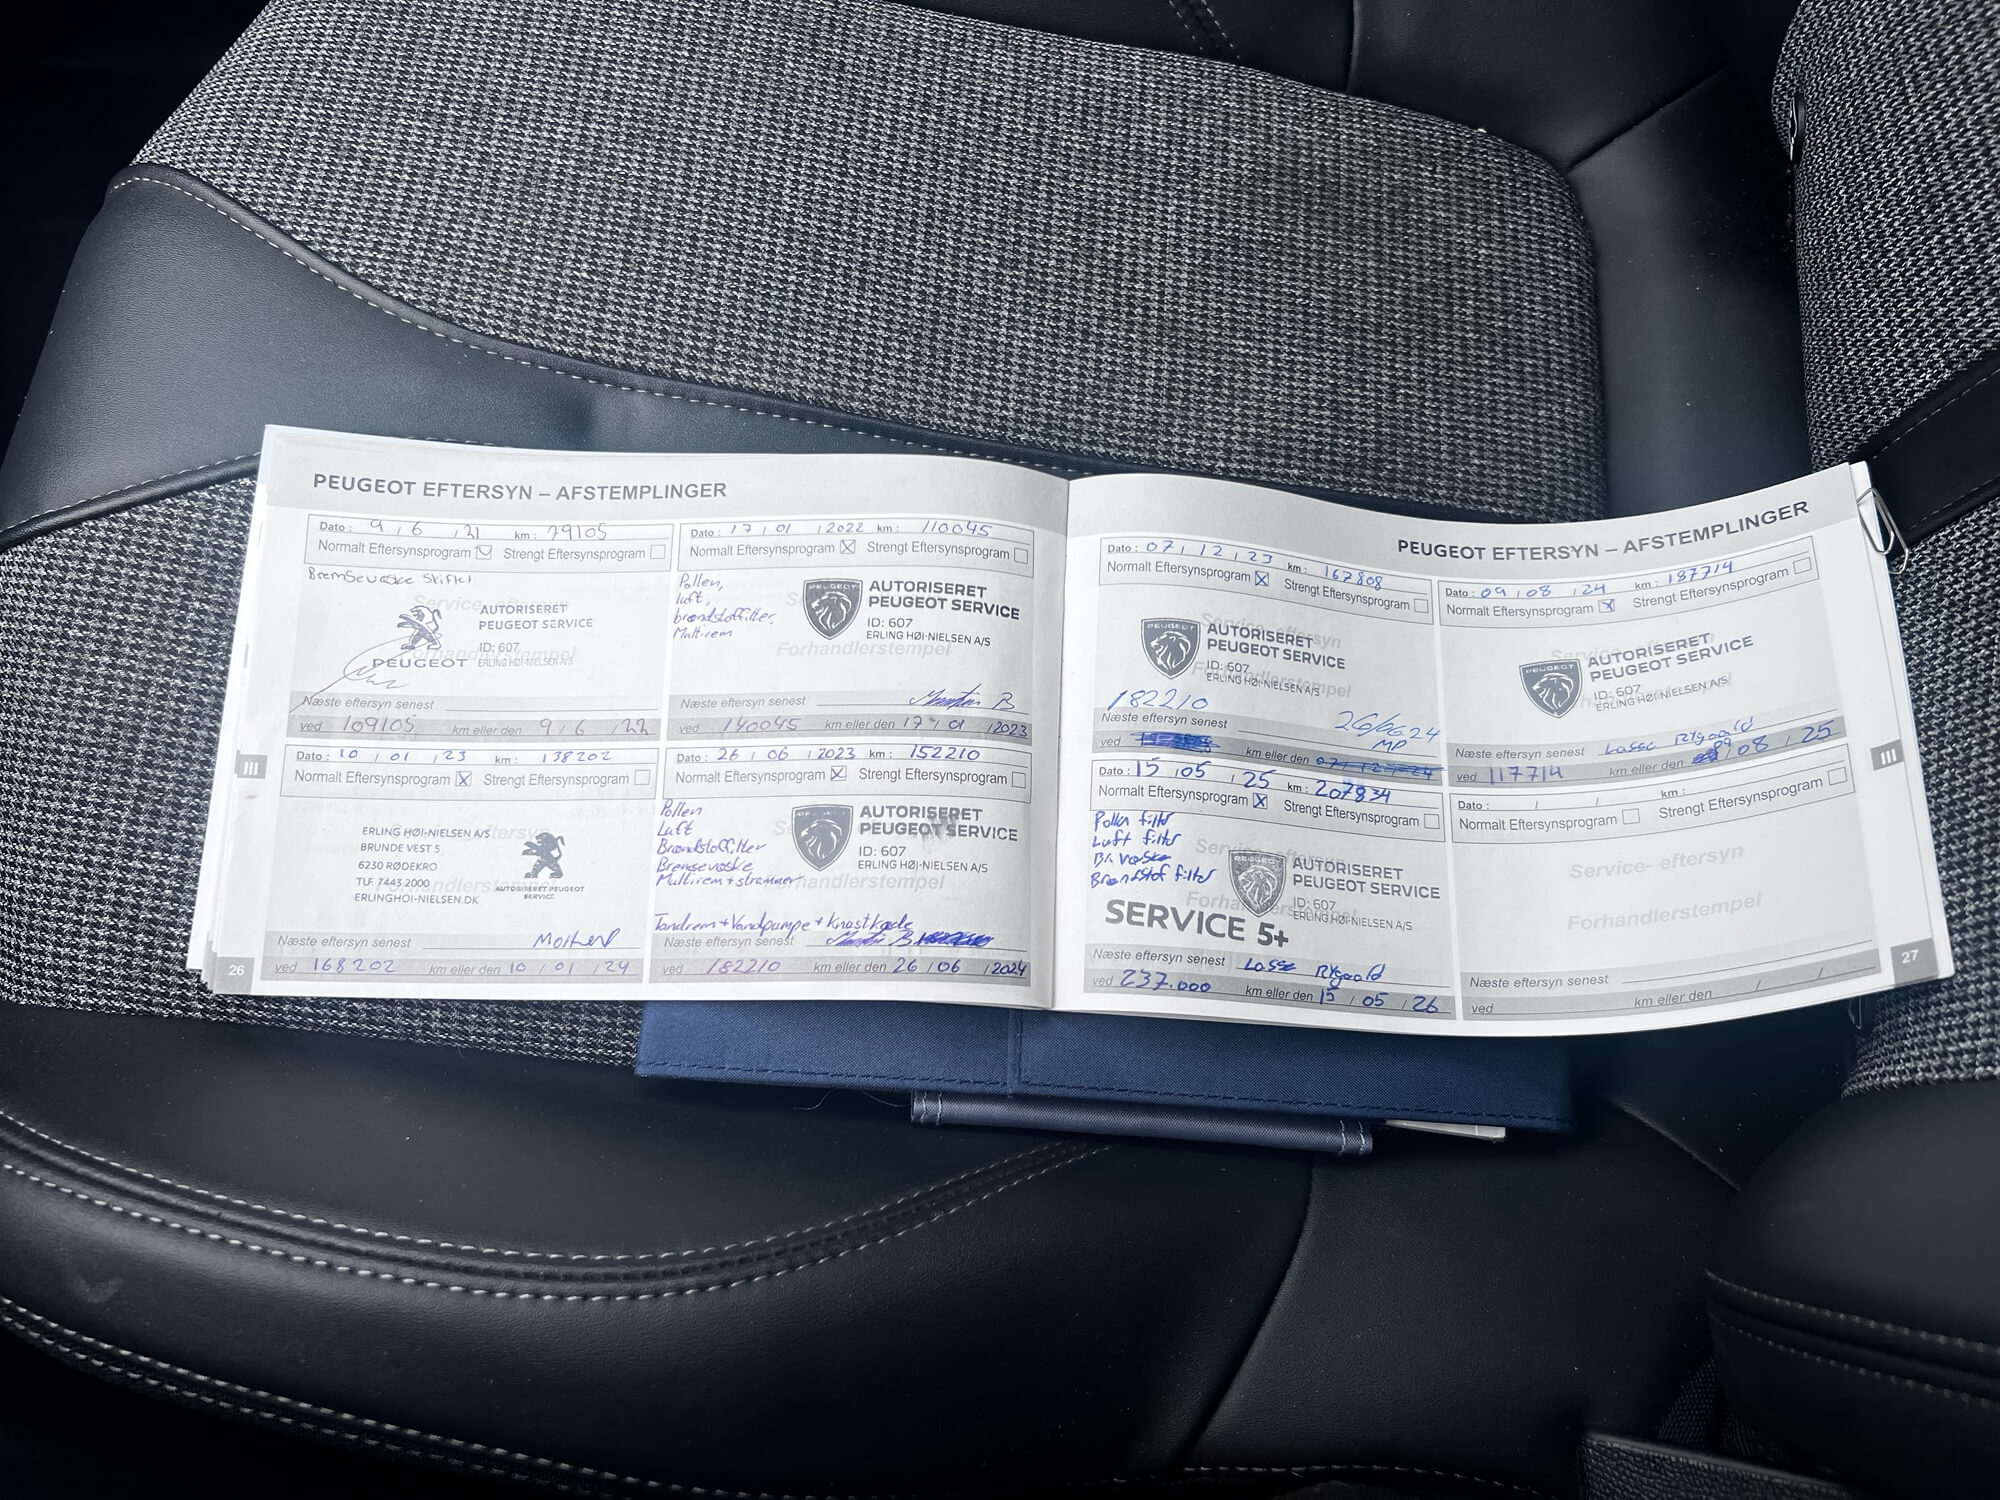 PEUGEOT EFTERSYN – AFSTEMPLINGER
Dato: 9 / 6 / 21 km: 79105
Normalt Eftersynsprogram Strengt Eftersynsprogram
Bremsevæske skiftet
AUTORISERET
PEUGEOT SERVICE
ID: 607
PEUGEOT ERLING HØI-NIELSEN A/S
Næste eftersyn senest
ved 109105 km eller den 9 / 6 / 22
Dato: 17 / 01 / 2022 km: 110045
Normalt Eftersynsprogram Strengt Eftersynsprogram
Pollen,
luft,
brændstoffilter,
Multirem
PEUGEOT
AUTORISERET
PEUGEOT SERVICE
ID: 607
ERLING HØI-NIELSEN A/S
Forhandlerstempel
Næste eftersyn senest Martin B
ved 140045 km eller den 17 / 01 / 2023
Dato: 10 / 01 / 23 km: 138202
Normalt Eftersynsprogram Strengt Eftersynsprogram
ERLING HØI-NIELSEN A/S
BRUNDE VEST 5
6230 RØDEKRO
TLF. 7443 2000
ERLINGHOI-NIELSEN.DK
AUTORISERET PEUGEOT
SERVICE
Næste eftersyn senest
ved 168202 km eller den 10 / 01 / 24
Dato: 26 / 06 / 2023 km: 152210
Normalt Eftersynsprogram Strengt Eftersynsprogram
Pollen
Luft
Brændstoffilter
Bremsevæske
Multirem + strammer
AUTORISERET
PEUGEOT SERVICE
ID: 607
ERLING HØI-NIELSEN A/S
Forhandlerstempel
Tandrem + Vandpumpe + Knastkæde
Næste eftersyn senest Martin B
ved 182210 km eller den 26 / 06 / 2024
III
26
PEUGEOT EFTERSYN – AFSTEMPLINGER
Dato: 07 / 12 / 23 km: 167808
Normalt Eftersynsprogram Strengt Eftersynsprogram
PEUGEOT
AUTORISERET
PEUGEOT SERVICE
ID: 607
ERLING HØI-NIELSEN A/S
182210
Næste eftersyn senest 26/06.24
MP
ved km eller den 07 / 12 - 24
Dato: 09 / 08 / 24 km: 187714
Normalt Eftersynsprogram Strengt Eftersynsprogram
PEUGEOT
AUTORISERET
PEUGEOT SERVICE
ID: 607
ERLING HØI-NIELSEN A/S
Næste eftersyn senest Lasse Rygaard
ved 117714 km eller den 09 / 08 / 25
Dato: 15 / 05 / 25 km: 207834
Normalt Eftersynsprogram Strengt Eftersynsprogram
Pollen filter
Luft filter
Br. væske
Brændstof filter
PEUGEOT
AUTORISERET
PEUGEOT SERVICE
ID: 607
ERLING HØI-NIELSEN A/S
SERVICE 5+
Næste eftersyn senest Lasse Rygaard
ved 237.000 km eller den 15 / 05 / 26
Dato: / / km:
Normalt Eftersynsprogram Strengt Eftersynsprogram
Service- eftersyn
Forhandlerstempel
Næste eftersyn senest
ved km eller den /
III
27